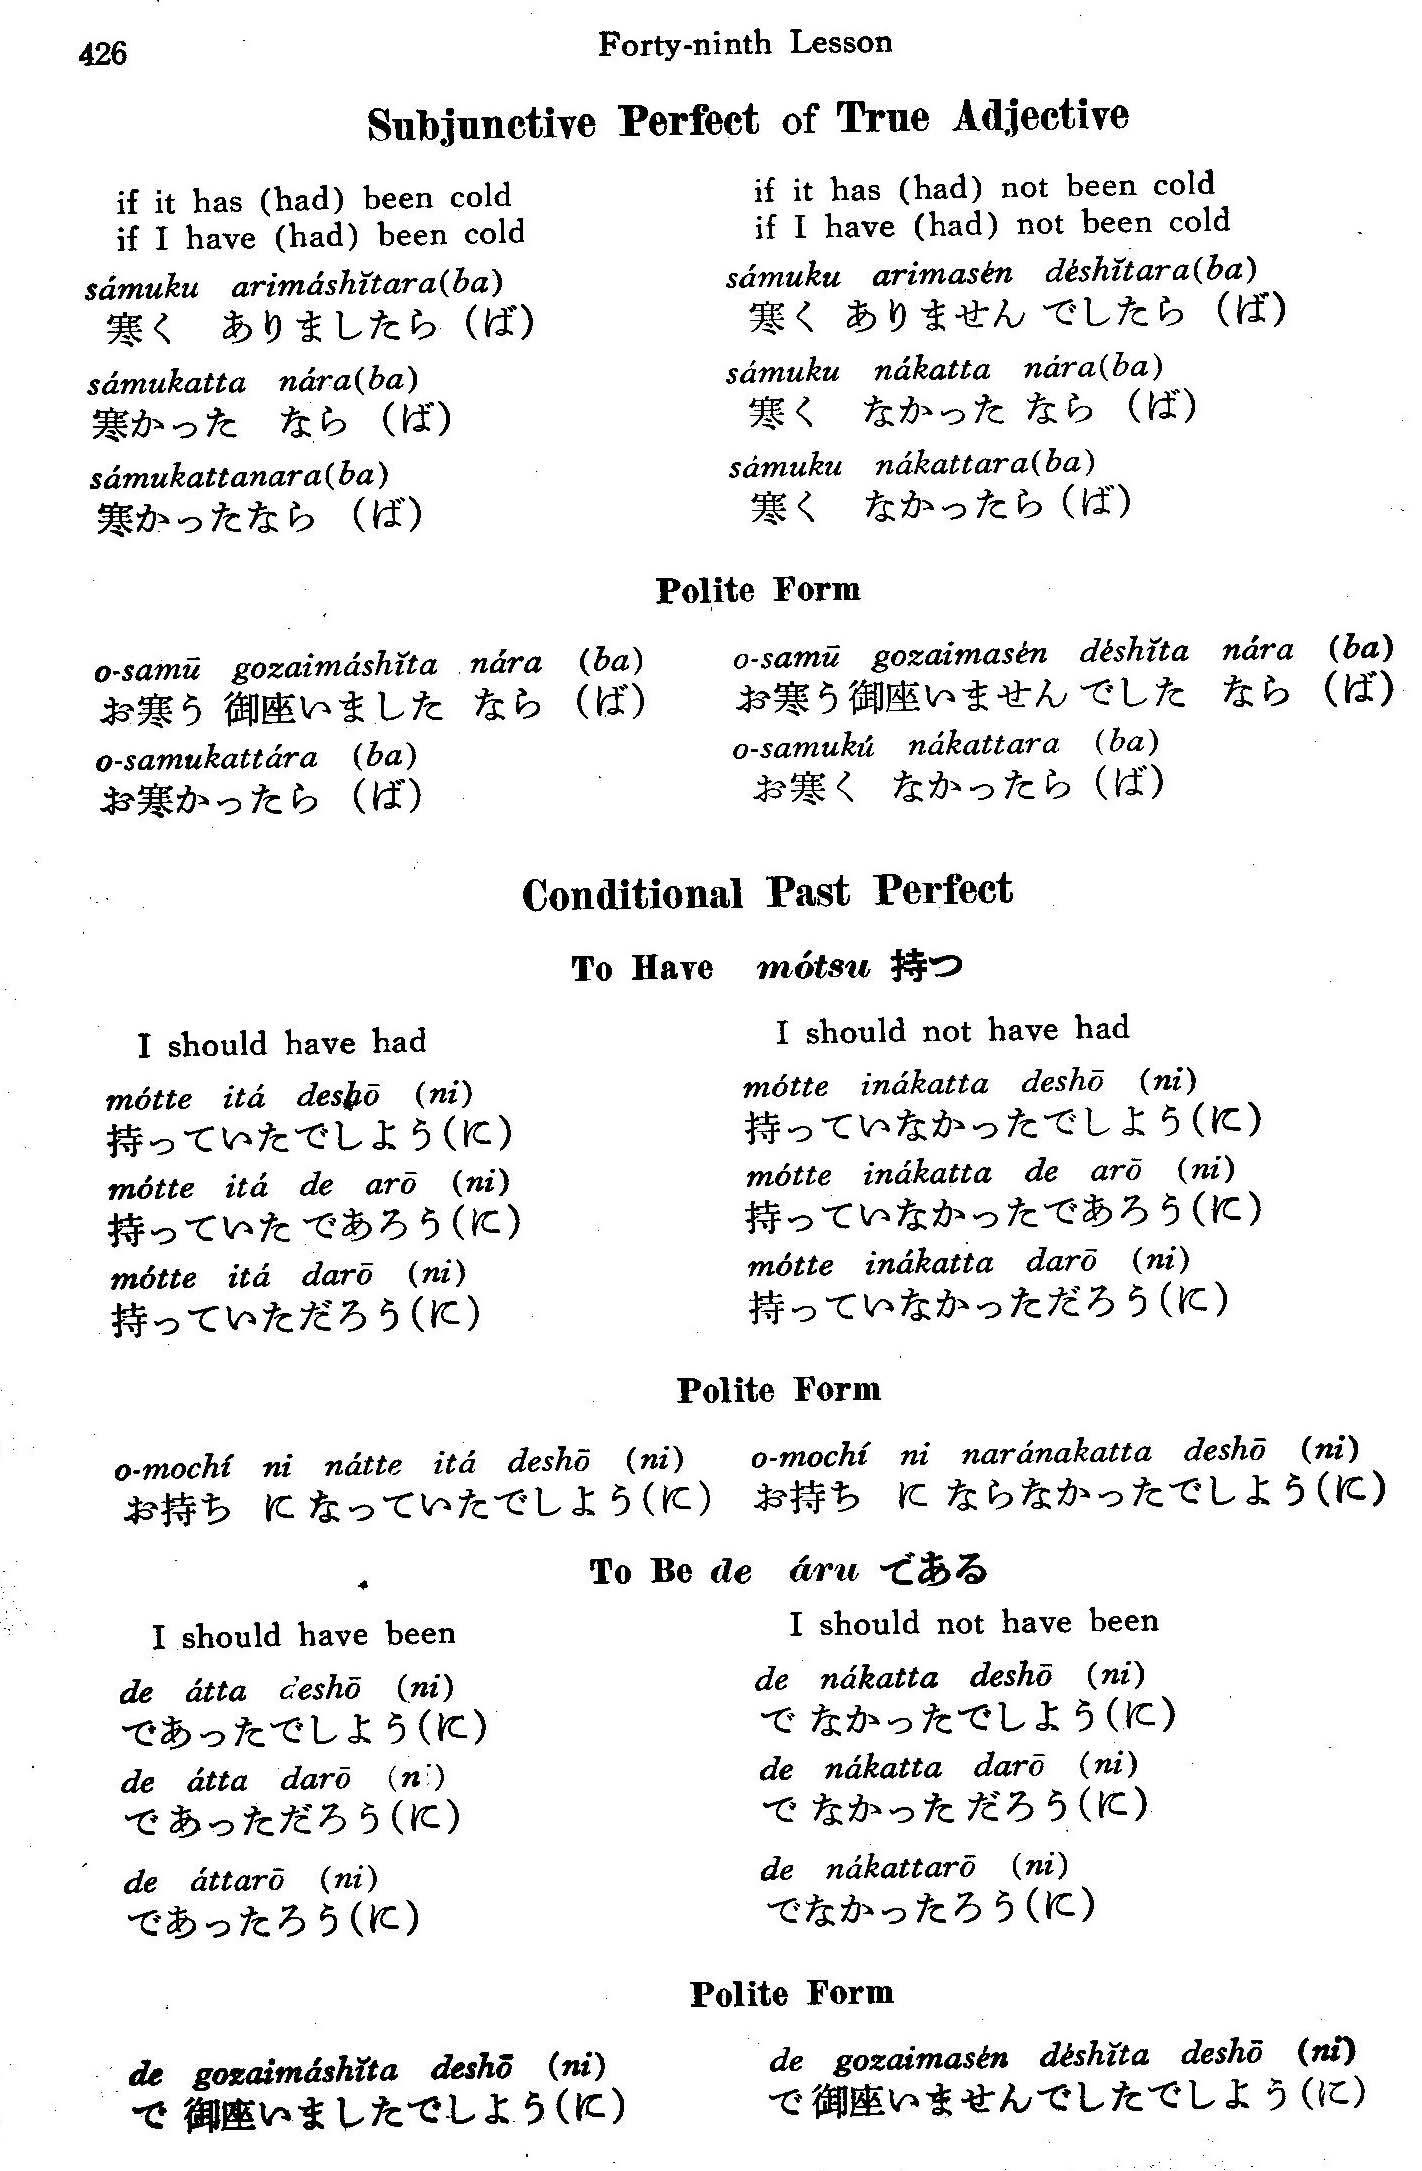 426
Forty-ninth Lesson
Subjunctive Perfect of True Adjective
if it has (had) been cold
if I have (had) been cold
sámuku arimáshĭtara(ba)
寒く ありましたら (ば)
sámukatta nára(ba)
寒かった なら (ば)
sámukattanara(ba)
寒かったなら (ば)
if it has (had) not been cold
if I have (had) not been cold
sámuku arimasén déshĭtara(ba)
寒く ありません でしたら (ば)
sámuku nákatta nára(ba)
寒く なかった なら (ば)
sámuku nákattara(ba)
寒く なかったら (ば)
Polite Form
o-samū gozaimáshĭta nára (ba)
お寒う 御座いました なら (ば)
o-samukattára (ba)
お寒かったら (ば)
o-samū gozaimasén déshĭta nára (ba)
お寒う御座いません でした なら (ば)
o-samukú nákattara (ba)
お寒く なかったら (ば)
Conditional Past Perfect
To Have mótsu 持つ
I should have had
mótte itá deshō (ni)
持っていたでしよう(に)
mótte itá de arō (ni)
持っていた であろう(に)
mótte itá darō (ni)
持っていただろう(に)
I should not have had
mótte inákatta deshō (ni)
持っていなかったでしよう(に)
mótte inákatta de arō (ni)
持っていなかったであろう(に)
mótte inákatta darō (ni)
持っていなかっただろう(に)
Polite Form
o-mochí ni nátte itá deshō (ni)
お持ち に なっていたでしよう(に)
o-mochí ni naránakatta deshō (ni)
お持ち に ならなかったでしよう(に)
To Be de áru である
I should have been
de átta deshō (ni)
であったでしよう(に)
de átta darō (ni)
で あっただろう(に)
de áttarō (ni)
であったろう(に)
I should not have been
de nákatta deshō (ni)
で なかったでしよう(に)
de nákatta darō (ni)
で なかった だろう(に)
de nákattarō (ni)
でなかったろう(に)
Polite Form
de gozaimáshĭta deshō (ni)
で 御座いましたでしよう(に)
de gozaimasén déshĭta deshō (ni)
で御座いませんでしたでしよう(に)